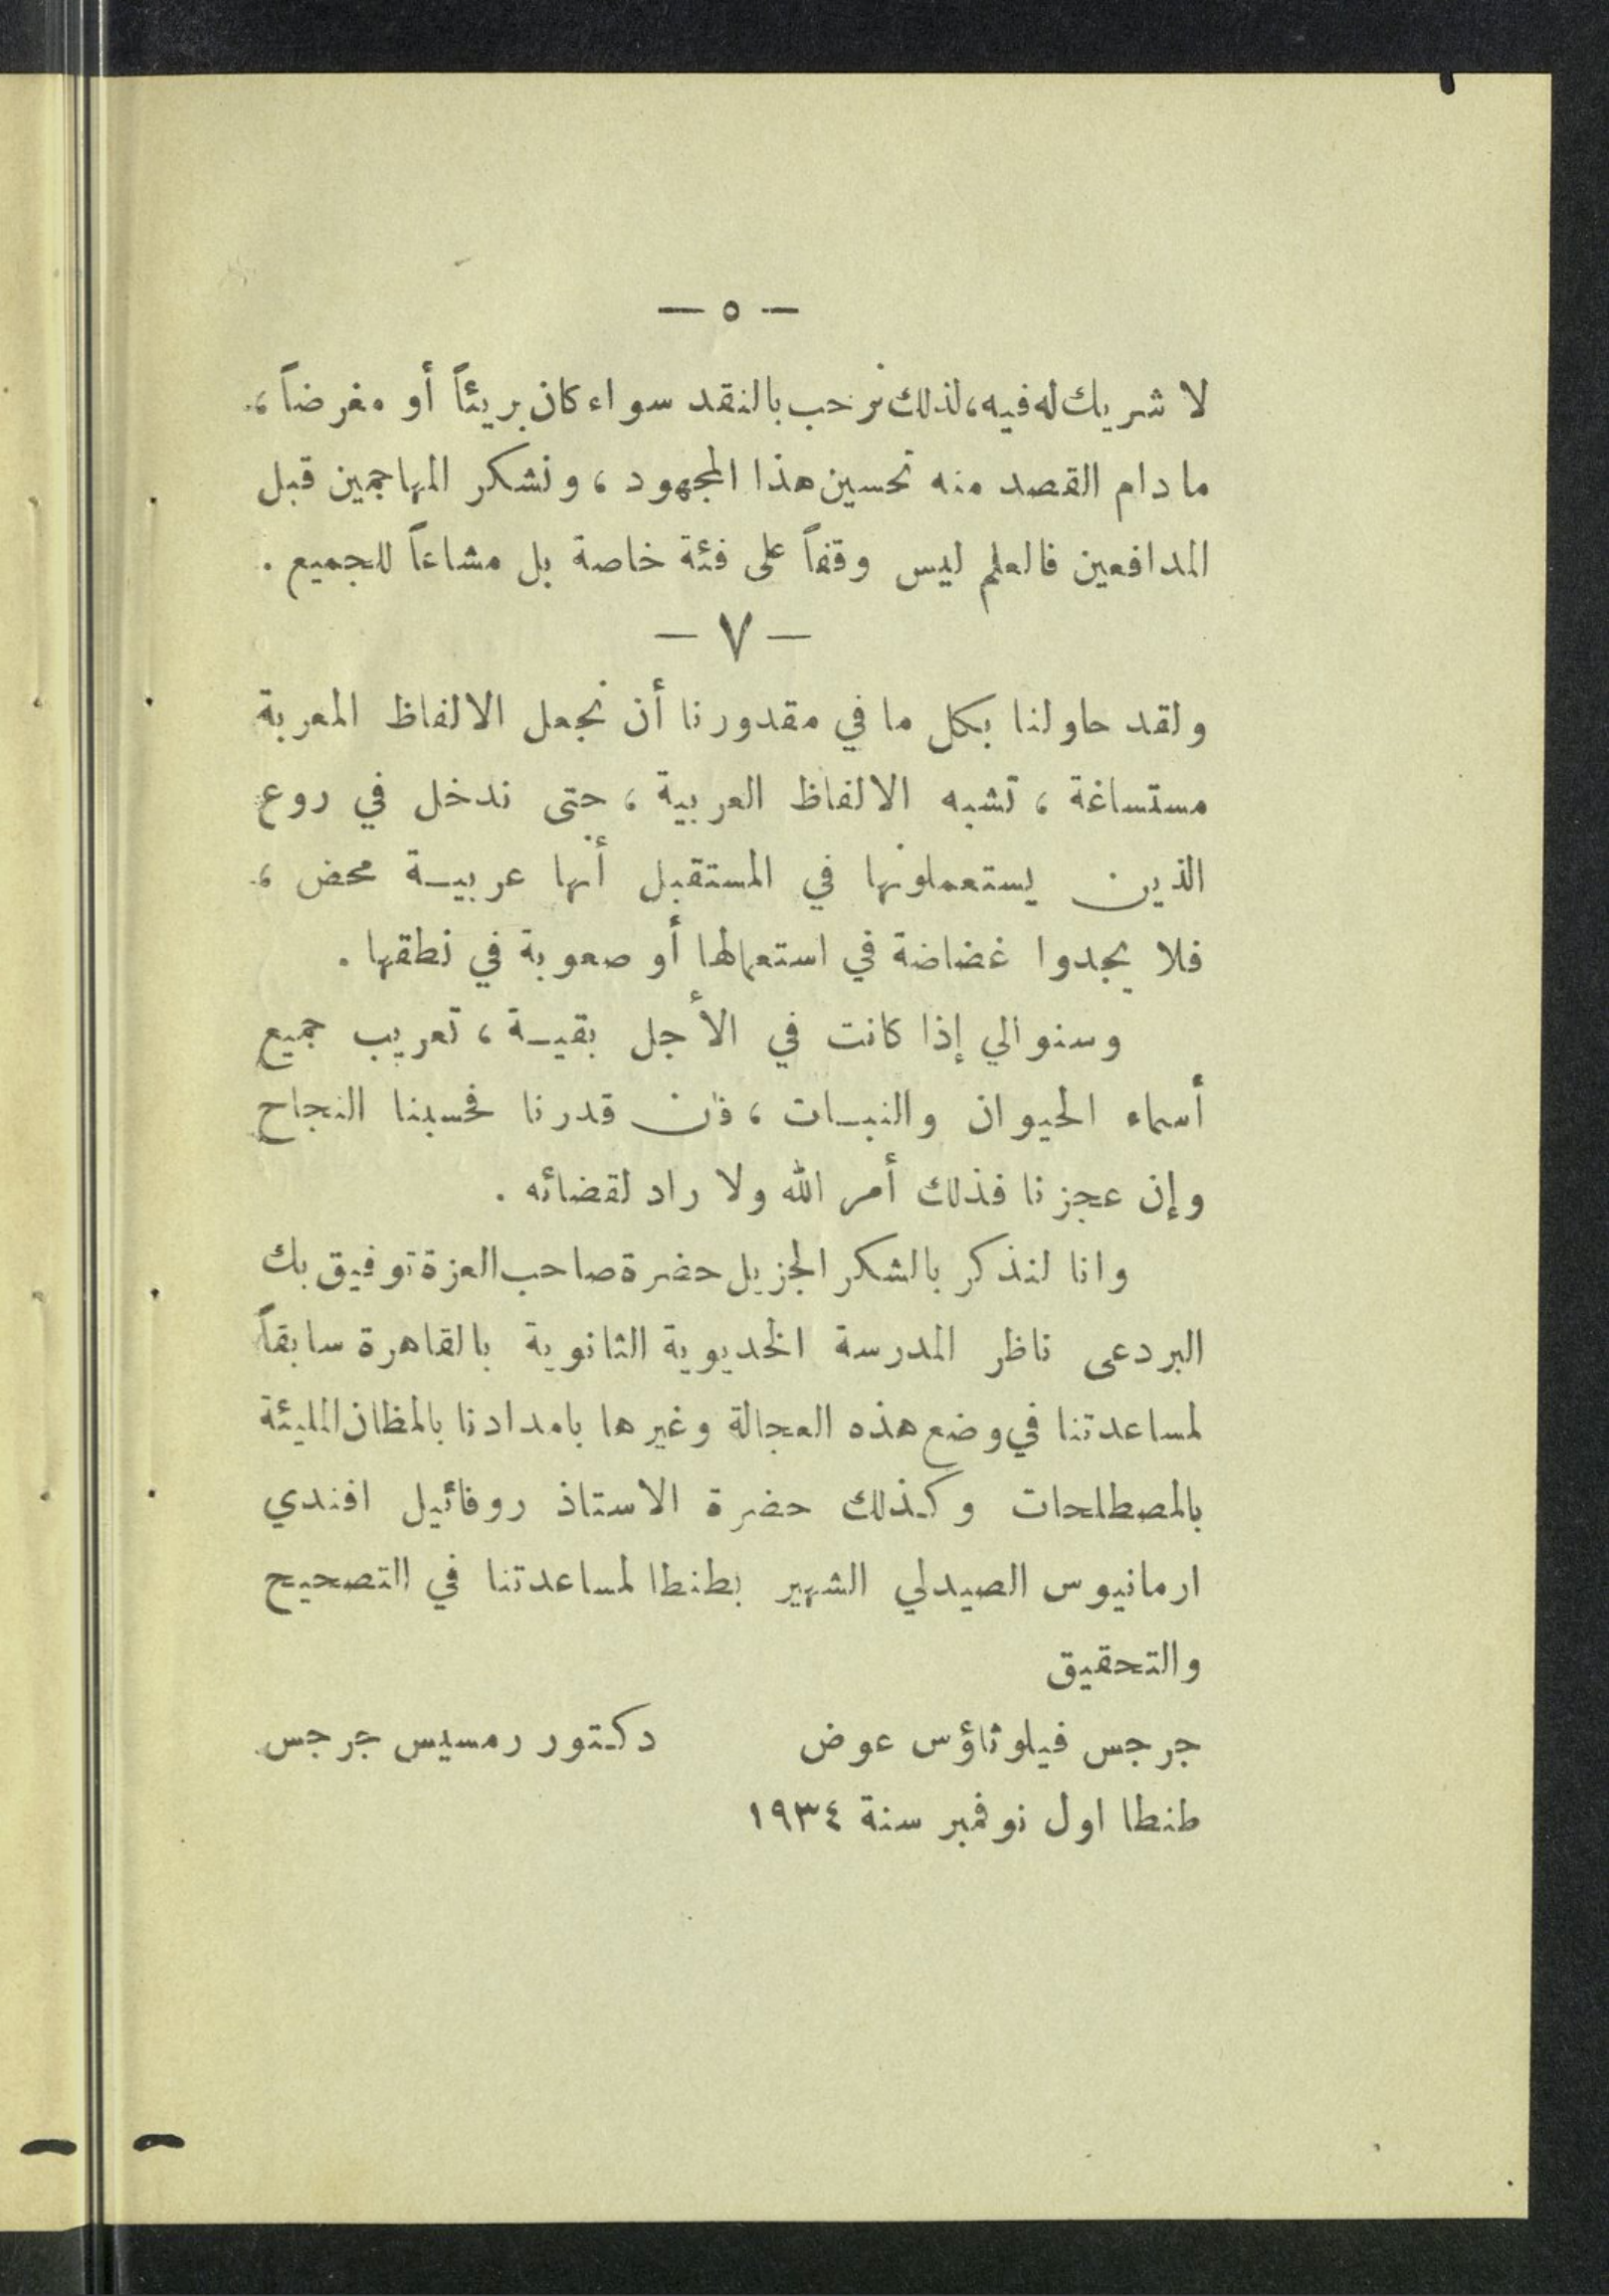 — ٥ —
لا شريك له فيه، لذلك نرحب بالنقد سواء كان بريئاً أو مغرضاً ،
ما دام القصد منه تحسين هذا المجهود ، ونشكر المهاجمين قبل
المدافعين فالعلم ليس وقفاً على فئة خاصة بل مشاعاً للجميع .
— ٧ —
ولقد حاولنا بكل ما في مقدورنا أن نجعل الالفاظ المعربة
مستساغة ، تشبه الالفاظ العربية ، حتى ندخل في روع
الذين يستعملونها في المستقبل أنها عربيـة محض ،
فلا يجدوا غضاضة في استعمالها أو صعوبة في نطقها .
وسنوالي إذا كانت في الأجل بقيـة ، تعريب جميع
أسماء الحيوان والنبـات ، فإن قدرنا فحسبنا النجاح
وإن عجزنا فذلك أمر الله ولا راد لقضائه .
وانا لنذكر بالشكر الجزيل حضرة صاحب العزة توفيق بك
البردعى ناظر المدرسة الخديوية الثانوية بالقاهرة سابقاً
لمساعدتنا في وضع هذه العجالة وغيرها بامدادنا بالمظان المليئة
بالمصطلحات وكذلك حضرة الاستاذ روفائيل افندي
ارمانيوس الصيدلي الشهير بطنطا لمساعدتنا في التصحيح
والتحقيق
جرجس فيلوثاؤس عوض دكتور رمسيس جرجس
طنطا اول نوفمبر سنة ١٩٣٤